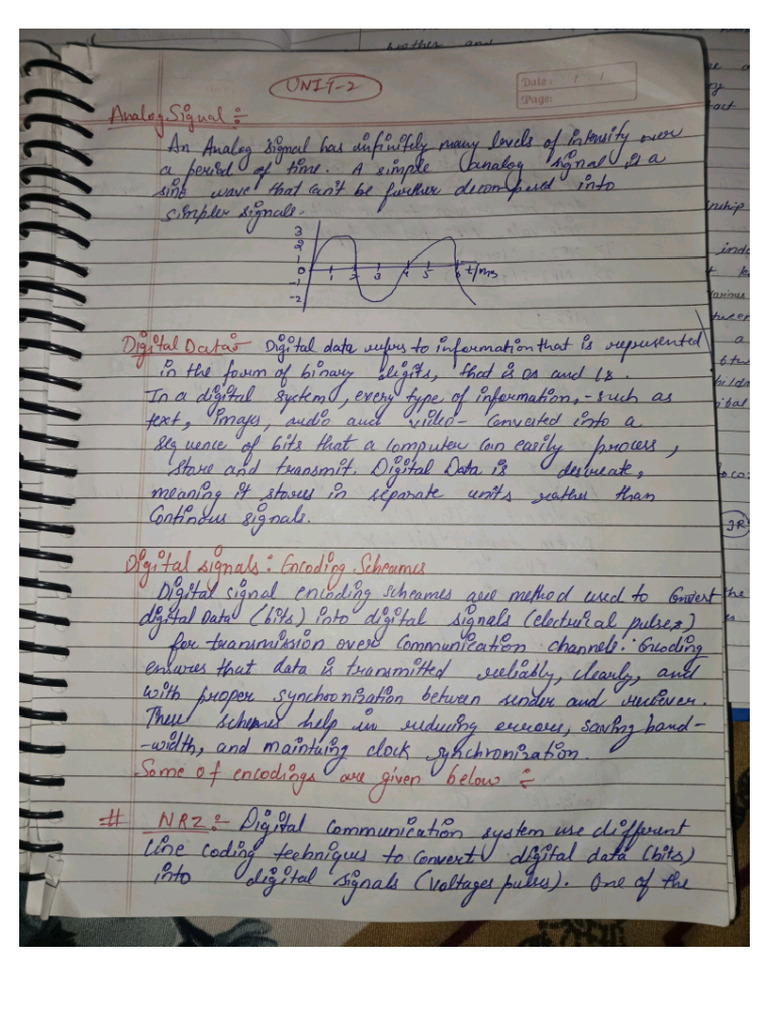 UNIT-2
Date: / /
Page:
Analog Signal :-
An Analog signal has infinitely many levels of intensity over
a period of time. A simple analog signal is a
sine wave that can't be further decomposed into
simpler signals.
3
2
1
0
-1
-2
1 2 3 4 5 6 t/ms
Digital Data :- Digital data refers to information that is represented
in the form of binary digits, that is 0s and 1s.
In a digital system, every type of information, - such as
text, images, audio and video - converted into a
sequence of bits that a computer can easily process,
store and transmit. Digital Data is descreate,
meaning it stores in separate units rather than
Continous signals.
Digital signals : Encoding Scheames
Digital signal encoding scheames are method used to convert
digital Data (bits) into digital signals (electrical pulses)
for transmission over communication channels. Encoding
ensures that data is transmitted reliably, clearly, and
with proper synchronization between sender and reciever.
These schemes help in reducing errors, saving band-
-width, and maintaing clock synchronization.
Some of encodings are given below :-
# NRZ :- Digital communication system use different
line coding techniques to convert digital data (bits)
into digital signals (voltages pulses). One of the